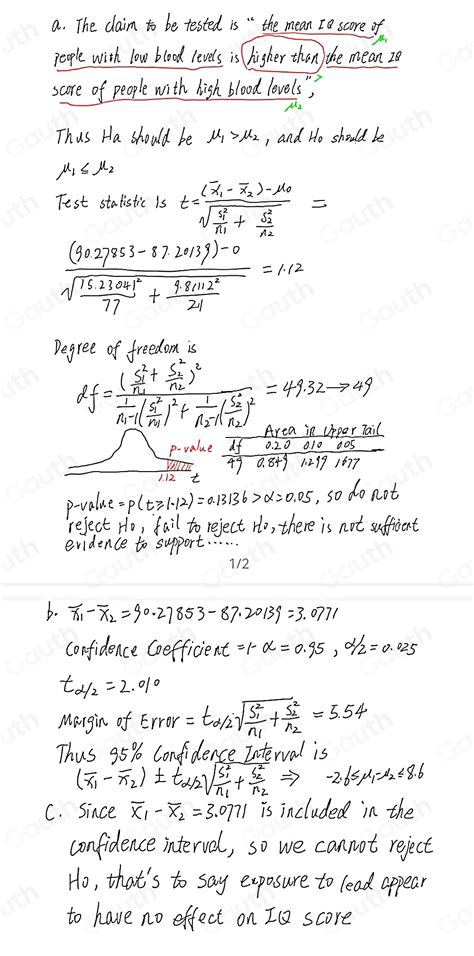 a. The claim to be tested is " the mean IQ score of
μ₁
people with low blood levels is higher than the mean IQ
>
score of people with high blood levels ",
μ₂
Thus Ha should be μ₁>μ₂, and Ho should be
μ₁ ≤ μ₂
Test statistic is t = (x̄₁ - x̄₂) - μ₀ / √(s₁²/n₁ + s₂²/n₂) =
(90.27853 - 87.20139) - 0 / √(15.23041²/77 + 9.81112²/21) = 1.12
Degree of freedom is
df = (s₁²/n₁ + s₂²/n₂)² / (1/n₁-1 (s₁²/n₁)² + 1/n₂-1 (s₂²/n₂)²) = 49.32 → 49
Area in Upper Tail
p-value df 0.20 0.10 0.05
49 0.849 1.299 1.677
1.12 t
p-value = p(t≥1.12) = 0.13136 > α = 0.05, so do not
reject Ho, fail to reject Ho, there is not sufficient
evidence to support ......
1/2
b. x̄₁ - x̄₂ = 90.27853 - 87.20139 = 3.0771
Confidence Coefficient = 1- α = 0.95, α/2 = 0.025
t α/2 = 2.010
Margin of Error = t α/2 √(s₁²/n₁ + s₂²/n₂) = 5.54
Thus 95% Confidence Interval is
(x̄₁ - x̄₂) ± t α/2 √(s₁²/n₁ + s₂²/n₂) ⇒ -2.6≤μ₁-μ₂≤8.6
C. Since x̄₁ - x̄₂ = 3.0771 is included in the
confidence interval, so we cannot reject
Ho, that's to say exposure to lead appear
to have no effect on IQ score
Gauth